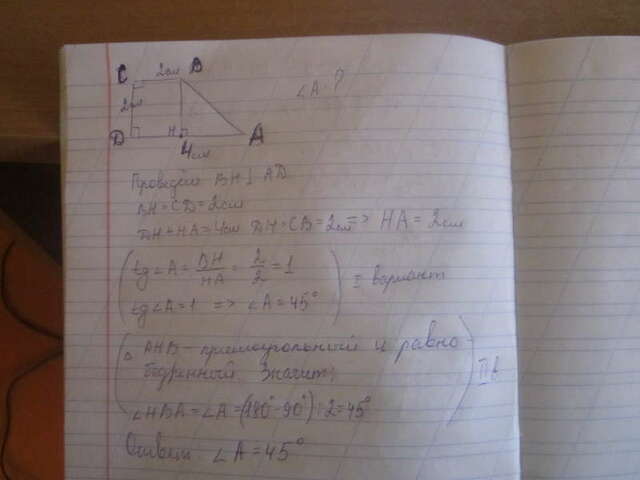 C 2см B
∠A-?
2см
D H A
4см
Проведём BH⊥AD
BH=CD=2см
DH+HA=4см DH=CB=2см => HA=2см
tg∠A = BH/HA = 2/2 = 1
I вариант
tg∠A=1 => ∠A=45°
△ AHB - прямоугольный и равно-
бедренный. Значит,
II в
∠HBA=∠A=(180°-90°):2=45°
Ответ: ∠A=45°